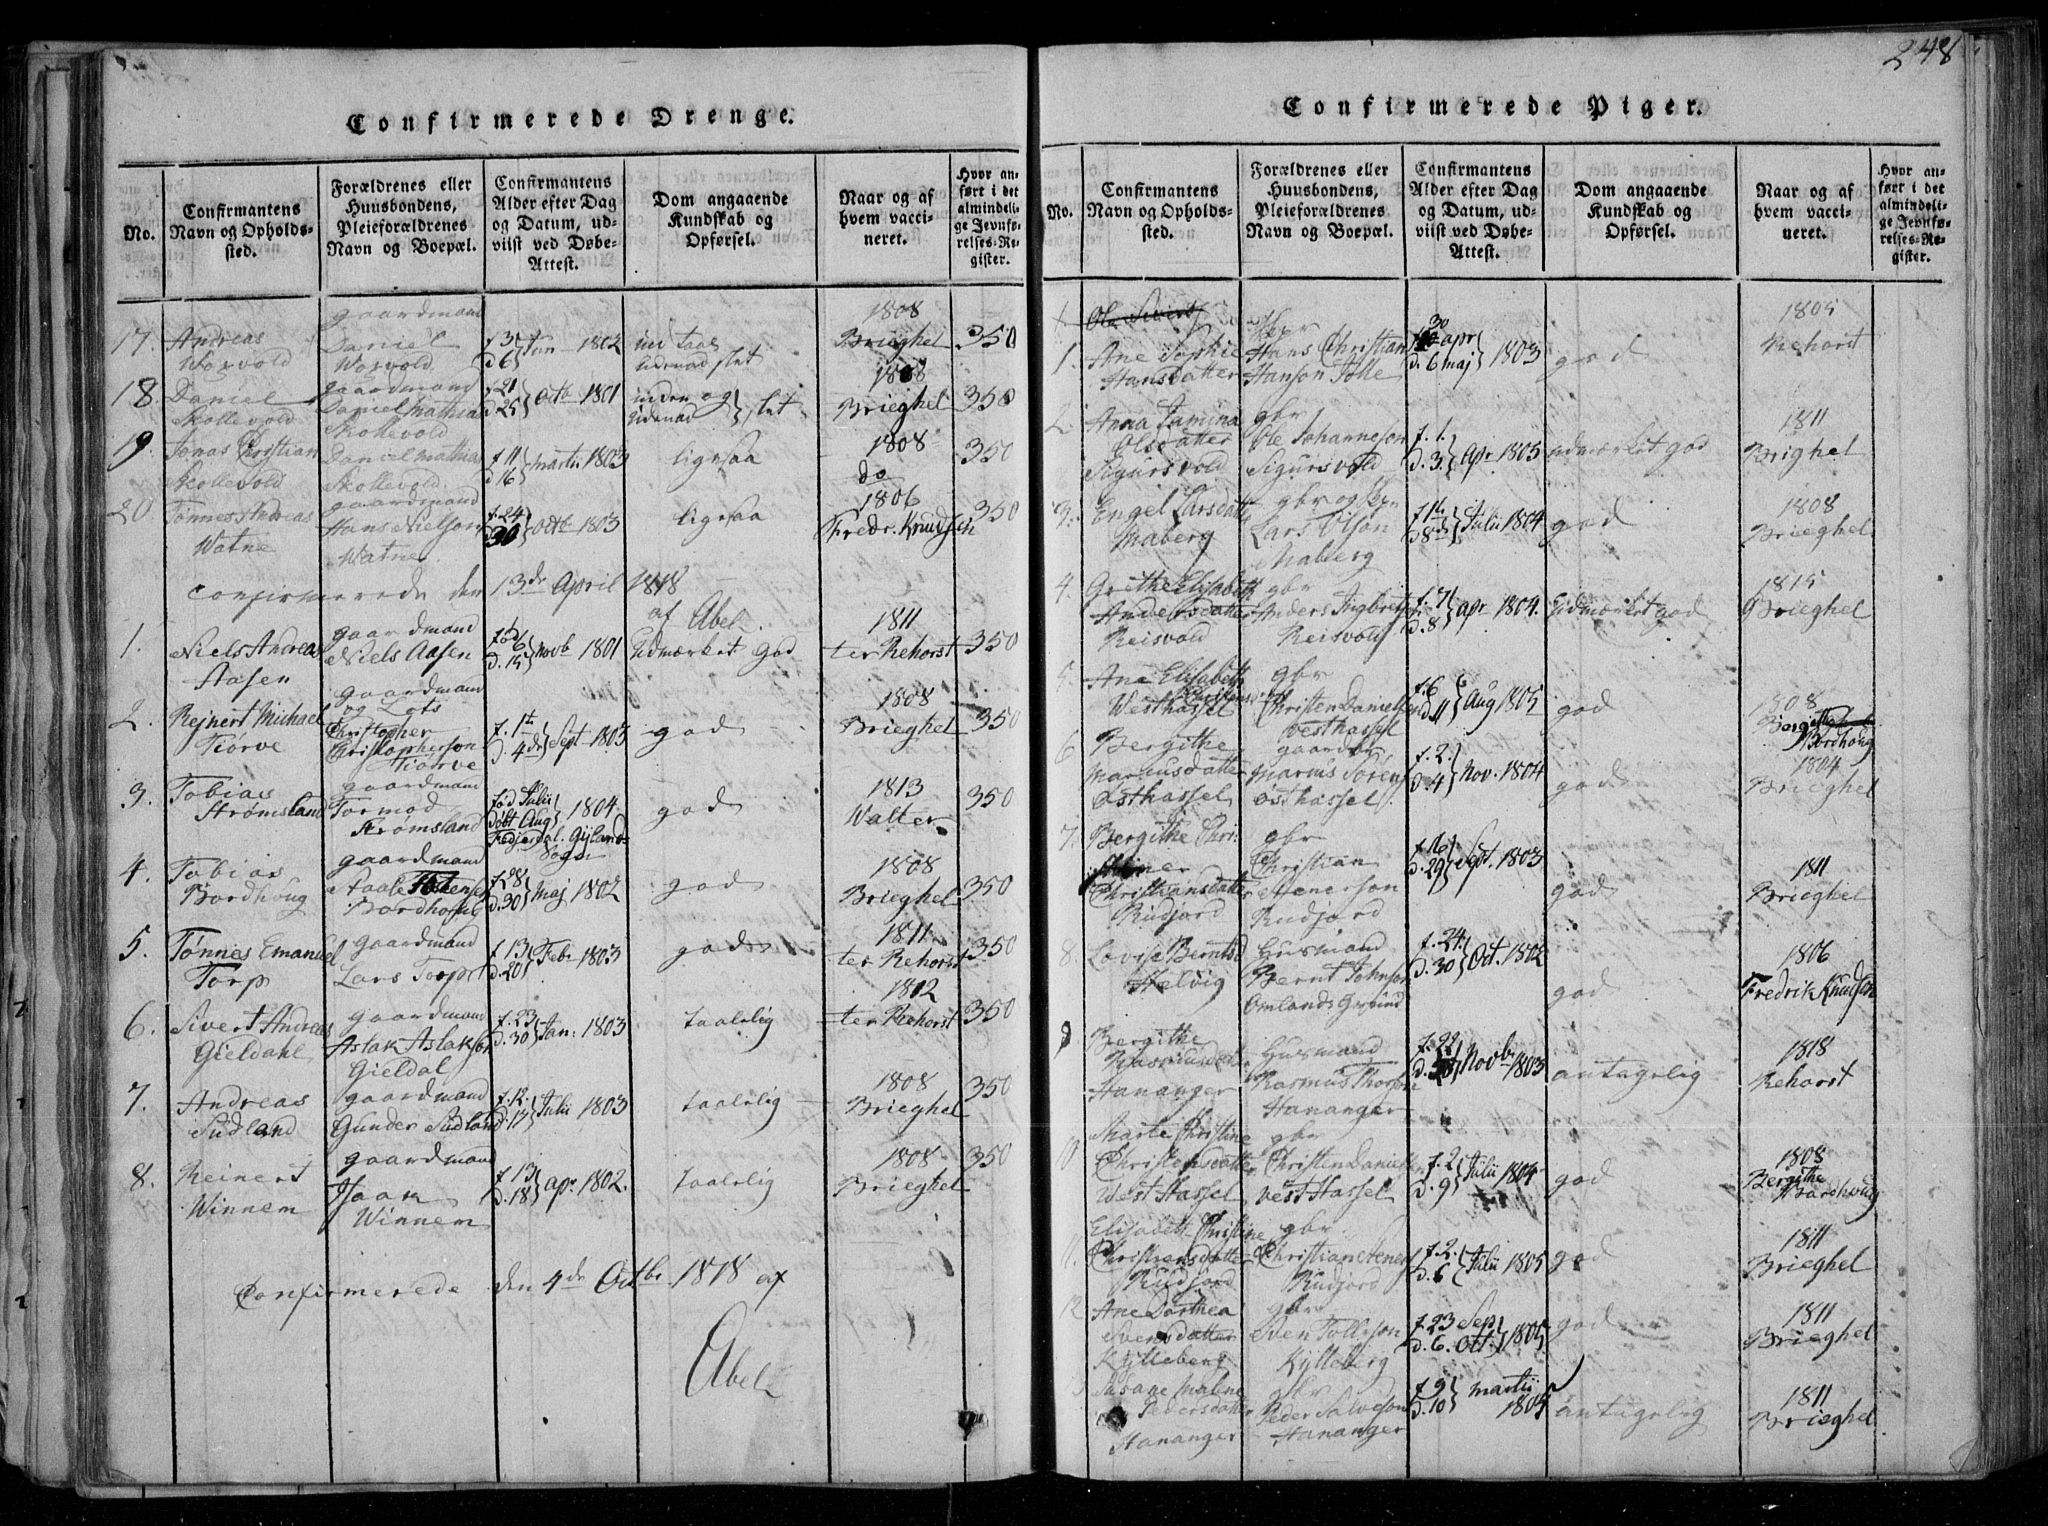 248
Confirmerede Drenge.
No.
Confirmantens
Navn og Opholds-
sted.
Forældrenes eller
Huusbondens,
Pleieforældrenes
Navn og Boepæl.
Confirmantens
Alder efter Dag
og Datum, ud-
viist ved Døbe-
Attest.
Dom angaaende
Kundskab og
Opførsel.
Naar og af
hvem vacci-
neret.
Hvor an-
ført i det
almindeli-
ge Jevnfø-
relses-Re-
gister.
17 Andreas
Woxvold
gaardmand
Daniel
Woxvold
f 3
d 6 Jun 1802
udenad slet
1808
Brieghel
350
18. Daniel
Skollevold
gaardmand
Daniel Mathias
Skollevold
f 21
d 25 Octb 1801
inden og
udenad slet
1808
Brieghel
350
19. Jonas Christian
Skollevold
Daniel Mathias
Skollevold
f 11
d 16 Martii 1803
ligesaa
1808
do
350
20 Tønnes Andreas
Watne
gaardmand
Hans Nielson
Watne
f. 24
30 Octb 1803
ligesaa
1806
Fredr. Knudsen
350
Confirmerede den 13de April 1818
af Abel.
1. Niels Andreas
Aasen
gaardmand
Niels Aasen
fød 6
d. 15 Novb 1801
Udmærket god
1811
ter Rehorst
350
2. Rejnert Michael
Tiørve
gaardmand
og Lots
Christopher
Christopherson
Tiørve
f. 1t
d. 4de Sept 1803
god
1808
Brieghel
350
3. Tobias
Strømsland
gaardmand
Tormod
Strømsland
fød Julii
døbt Aug 1804
god
1813
Walter
350
4. Tobias
Bordhoug
gaardmand
f. 28
d. 30 Maj 1802
god
1808
Brieghel
350
5. Tønnes Emanuel
Torp
gaardmand
Lars Torp
f. 13
d. 20 Feb. 1803
god
1811
ter Rehorst
350
6. Sivert Andreas
Gieldahl
gaardmand
Aslak Aslakson
Gieldal
f. 23
d. 30 Jan: 1803
taalelig
1812
ter Rehorst
350
7. Andreas
Sudland
gaardmand
Gunder Sudland
f. 12.
d. 17 Julii 1803
taalelig
1808
Brieghel
350
8. Reinert
Winnem
gaardmand
Isaak
Winnem
f 13
d. 18 apr. 1802.
taalelig
1808
Brieghel
350
Confirmerede den 4de Octbr 1818 af
Abel
Confirmerede Piger.
No.
Confirmantens
Navn og Opholds-
sted.
Forældrenes eller
Huusbondens,
Pleieforældrenes
Navn og Boepæl.
Confirmantens
Alder efter Dag
og Datum, ud-
viist ved Døbe-
Attest.
Dom angaaende
Kundskab og
Opførsel.
Naar og af
hvem vacci-
neret.
Hvor an-
ført i det
almindeli-
ge Jevnfø-
relses-Re-
gister.
1. Ane Sophie
Hansdatter
Hans Christian
Hanson Tolle
30 apr
d. 6 maj 1803
god
1805
Rehorst
2. Anna Tamina
Olsdatter
Sigursvold
gbr
Ole Johanneson
Sigursvold
f. 1.
d. 3. Apr 1805
udmærket god
1811
Brighel
3. Engel Larsdatter
Maberg
Lars Olson
Maberg
Julii 1804
god
1808
Brieghel
4. Grethe Elisabeth
Andersdatter
Reisvold
gbr
Anders
Reisvold
f. 7
d. 8 apr 1804.
Udmærket god
1815
Brieghel
5. Ane Elisabeth
Westhassel
gbr
Christen Danielsen
Vesthassel
f. 6
d. 11 Aug 1802
god
1808
Bergithe
Bordhoug
6 Bergithe
Marcusdatter
Osthassel
gaardbr
Marcus Søren
Osthassel
f. 2.
d. 4 Nov. 1804
god
1804
Brieghel
7. Bergithe Chri-
Christiansdatter
Rudjord
gbr
Christian
Stenerson
Rudjord
f. 16
d. 29 Sept. 1803
god
1811
Brieghel
8. Lovise
Helvig
Huusmand
Bernt Johnson
Omlands Grund
f. 24.
d. 30 Oct. 1802
god
1806
Fredrik Knudsen
9 Bergithe
Hananger
Huusmand
Rasmus
Hananger
f. 22
Novb 1803
antagelig
1818
Rehorst
10 Marte Christine
Christensdatter
West Hassel
gbr
Christen Danielsen
Vest Hassel
f. 2
d. 9 Julii 1804
god
1808
Bergithe
Bordhoug
11. Elisabett Christine
Christiansdatter
Rudjord
gbr.
Christian Stener
Rudjord
f. 2.
d. 6 Julii 1805
god
1811
Brieghel
12 Ane Dorthea
Svensdatter
Kylleberg
gbr
Sven Tollefson
Kylleberg
f. 23 Sep
d. 6. Oct. 1805
god
1811
Brieghel
Susane Malene
Pedersdatter
Hananger
gbr
Peder Salveson
Hananger
f. 9
d. 10 Martii
antagelig
1811
Brieghel